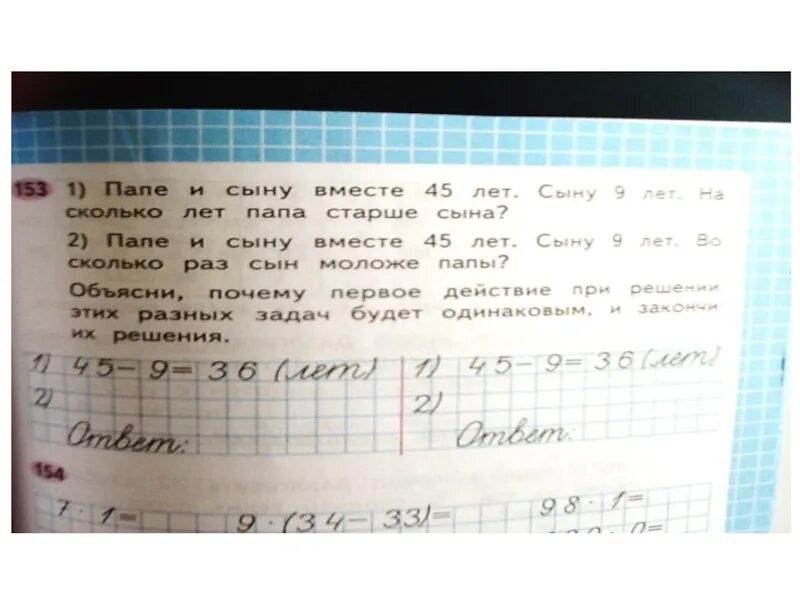 153 1) Папе и сыну вместе 45 лет. Сыну 9 лет. На
сколько лет папа старше сына?
2) Папе и сыну вместе 45 лет. Сыну 9 лет. Во
сколько раз сын моложе папы?
Объясни, почему первое действие при решении
этих разных задач будет одинаковым, и закончи
их решения.
1) 45 − 9 = 36 (лет) 1) 45 − 9 = 36 (лет)
2) 2)
Ответ: Ответ:
154
7 · 1 = 9 · (34 − 33) = 98 · 1 =